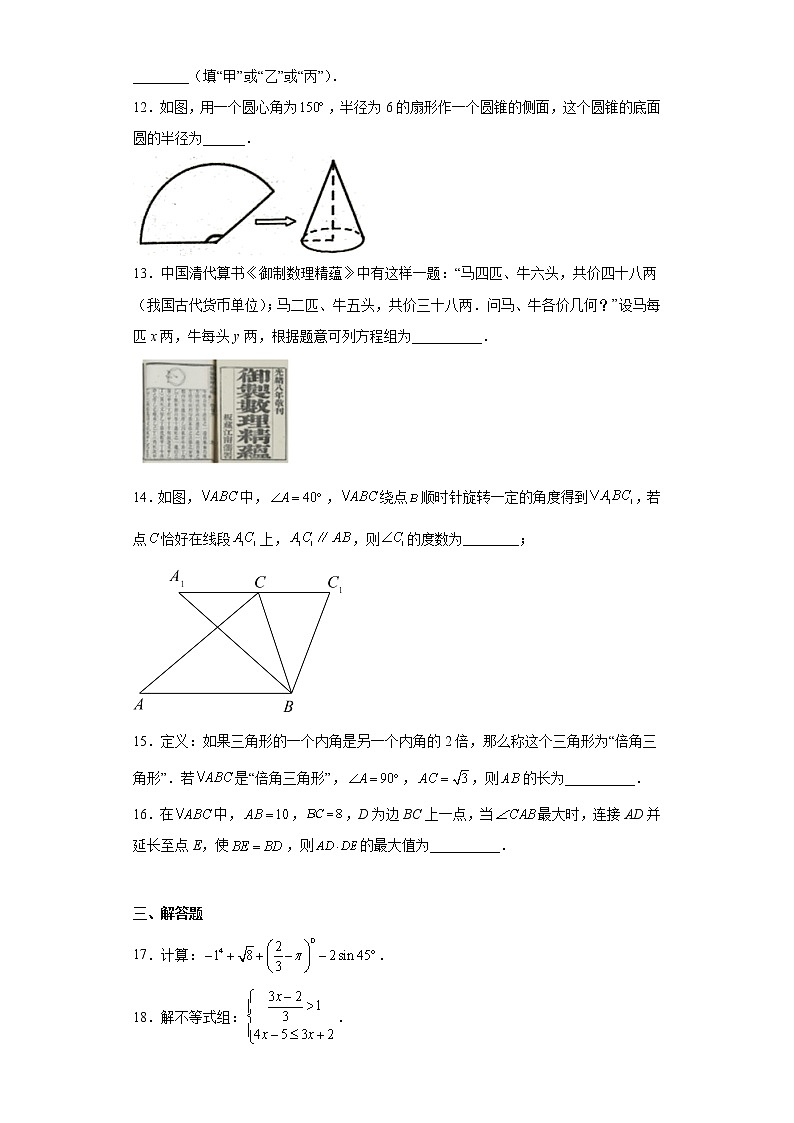 ________（填“甲”或“乙”或“丙”）.
12．如图，用一个圆心角为150°，半径为 6的扇形作一个圆锥的侧面，这个圆锥的底面
圆的半径为______．
13．中国清代算书《御制数理精蕴》中有这样一题：“马四匹、牛六头，共价四十八两
（我国古代货币单位）；马二匹、牛五头，共价三十八两．问马、牛各价几何？”设马每
匹 x 两，牛每头 y 两，根据题意可列方程组为__________．
光绪八年敬刊
御製數理精蘊
14．如图，VABC中，∠A = 40°，VABC绕点 B 顺时针旋转一定的角度得到VA₁BC₁，若
点 C 恰好在线段 A₁C₁ 上，A₁C₁ ∥ AB，则∠C₁ 的度数为________；
A₁ C C₁
A B
15．定义：如果三角形的一个内角是另一个内角的 2 倍，那么称这个三角形为“倍角三
角形”．若VABC 是“倍角三角形”，∠A = 90°，AC = √3，则 AB 的长为__________．
16．在VABC中，AB = 10，BC = 8，D 为边 BC 上一点，当∠CAB最大时，连接 AD 并
延长至点 E，使 BE = BD，则 AD·DE 的最大值为__________．
三、解答题
17．计算：−1⁴ + √8 + (2/3 − π)⁰ − 2 sin 45°．
18．解不等式组：{ (3x − 2)/3 > 1
4x − 5 ≤ 3x + 2 ．